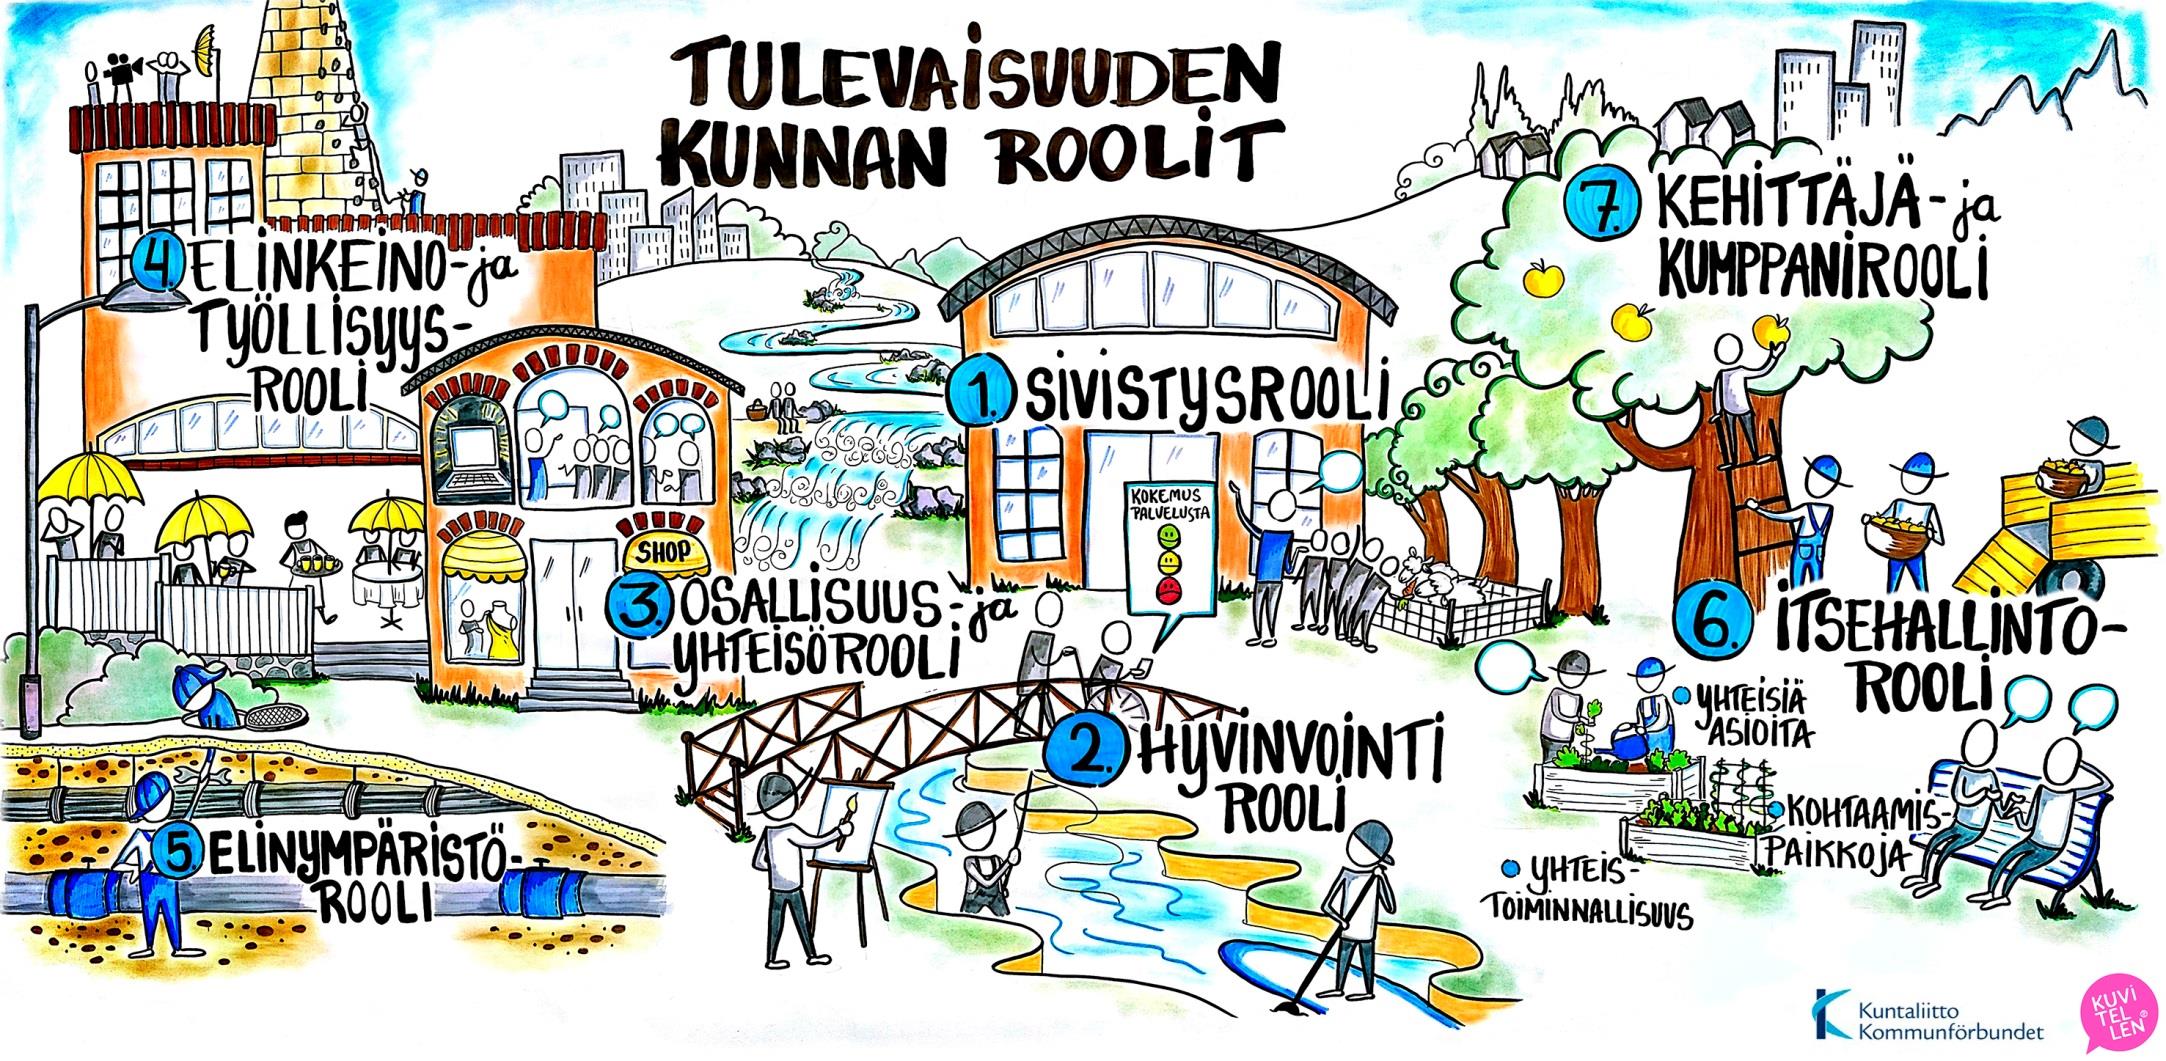 TULEVAISUUDEN
KUNNAN ROOLIT
1. SIVISTYSROOLI
KOKEMUS
PALVELUSTA
2. HYVINVOINTI
ROOLI
3. OSALLISUUS- ja
YHTEISÖROOLI
SHOP
4. ELINKEINO- ja
TYÖLLISYYS-
ROOLI
5. ELINYMPÄRISTÖ-
ROOLI
6. ITSEHALLINTO-
ROOLI
YHTEISIÄ
ASIOITA
KOHTAAMIS-
PAIKKOJA
YHTEIS-
TOIMINNALLISUUS
7. KEHITTÄJÄ- ja
KUMPPANIROOLI
Kuntaliitto
Kommunförbundet
KUVI
TEL
LEN®